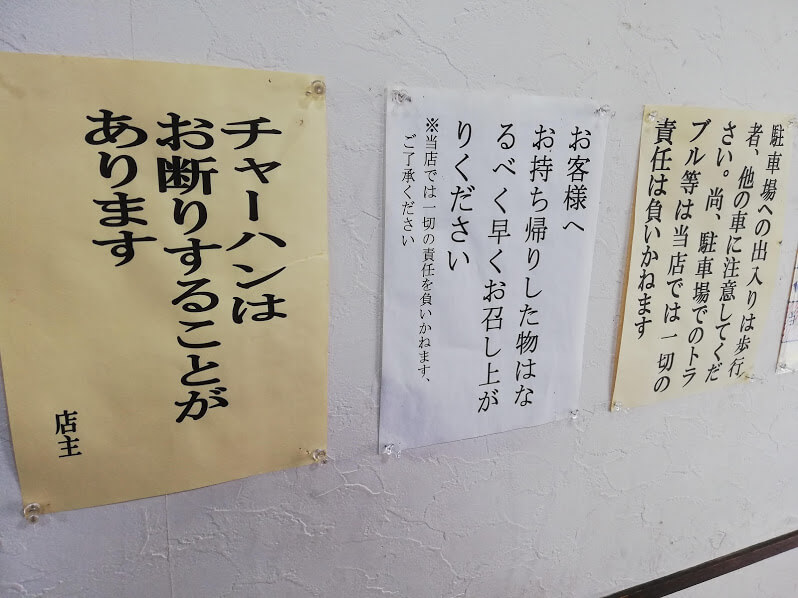 チャーハンは
お断りすることが
あります
店主
お客様へ
お持ち帰りした物はな
るべく早くお召し上が
りください
※当店では一切の責任を負いかねます、
ご了承ください
駐車場への出入りは歩行
者、他の車に注意してくだ
さい。尚、駐車場でのトラ
ブル等は当店では一切の
責任は負いかねます